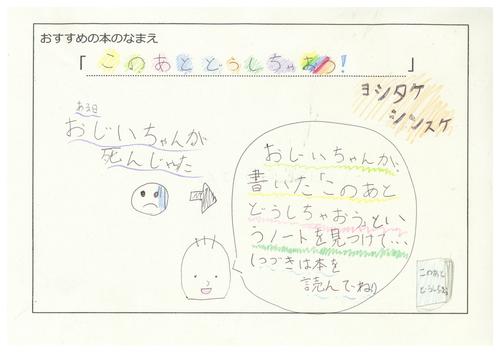 おすすめの本のなまえ
「このあとどうしちゃおう!」
ヨシタケ
シンスケ
ある日
おじいちゃんが
死んじゃった
おじいちゃんが
書いた「このあと
どうしちゃおう」とい
うノートを見つけて…
つづきは本を
読んでねり
このあと
どうしちゃおう